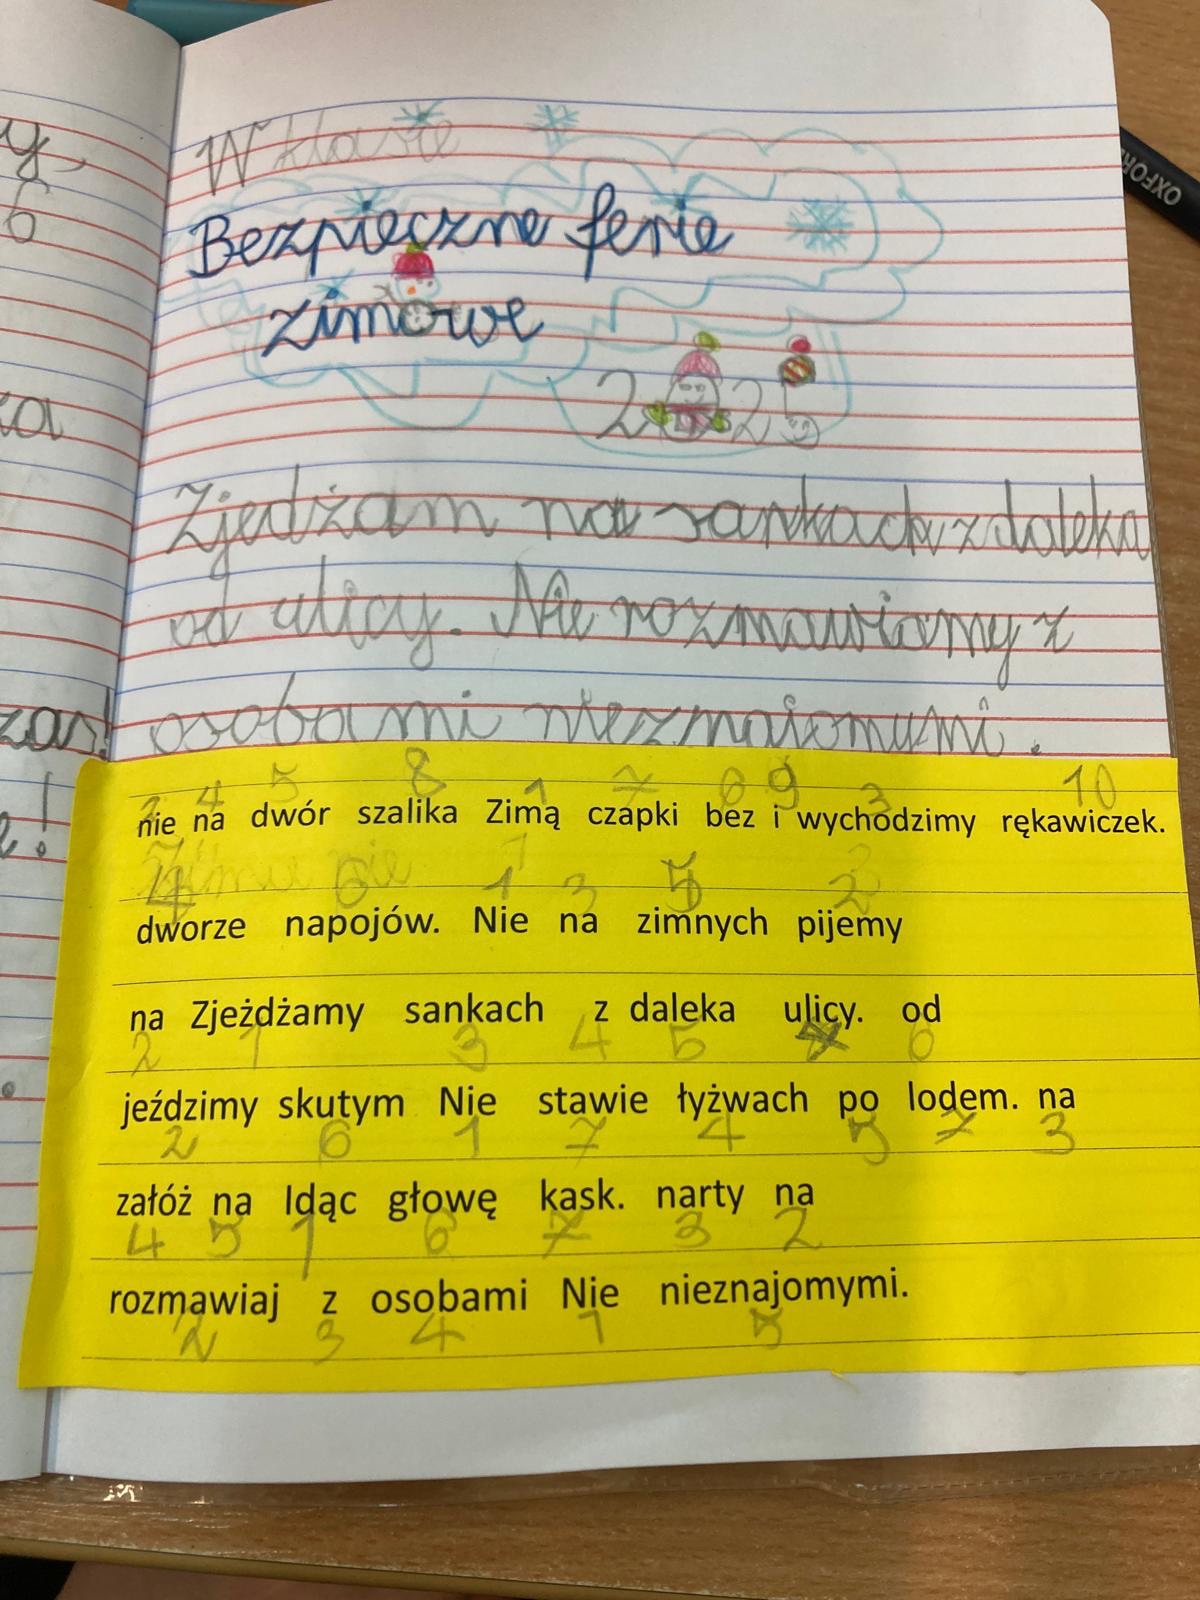 y,
6
W klasie
Bezpieczne ferie
zimowe
2025
ka
Zjedżam na sankach z daleka
od ulicy. Nie rozmawiamy z
zar! osobami nieznajomymi.
!
3 4 5 8 1 7 6 9 3 10
nie na dwór szalika Zimą czapki bez i wychodzimy rękawiczek.
Zimą nie 1
4 6 1 3 5 2
dworze napojów. Nie na zimnych pijemy
na Zjeżdżamy sankach z daleka ulicy. od
2 1 3 4 5 7 6
jeździmy skutym Nie stawie łyżwach po lodem. na
2 6 1 7 4 5 7 3
załóż na Idąc głowę kask. narty na
4 5 1 6 7 3 2
rozmawiaj z osobami Nie nieznajomymi.
2 3 4 1 5
OXFORD